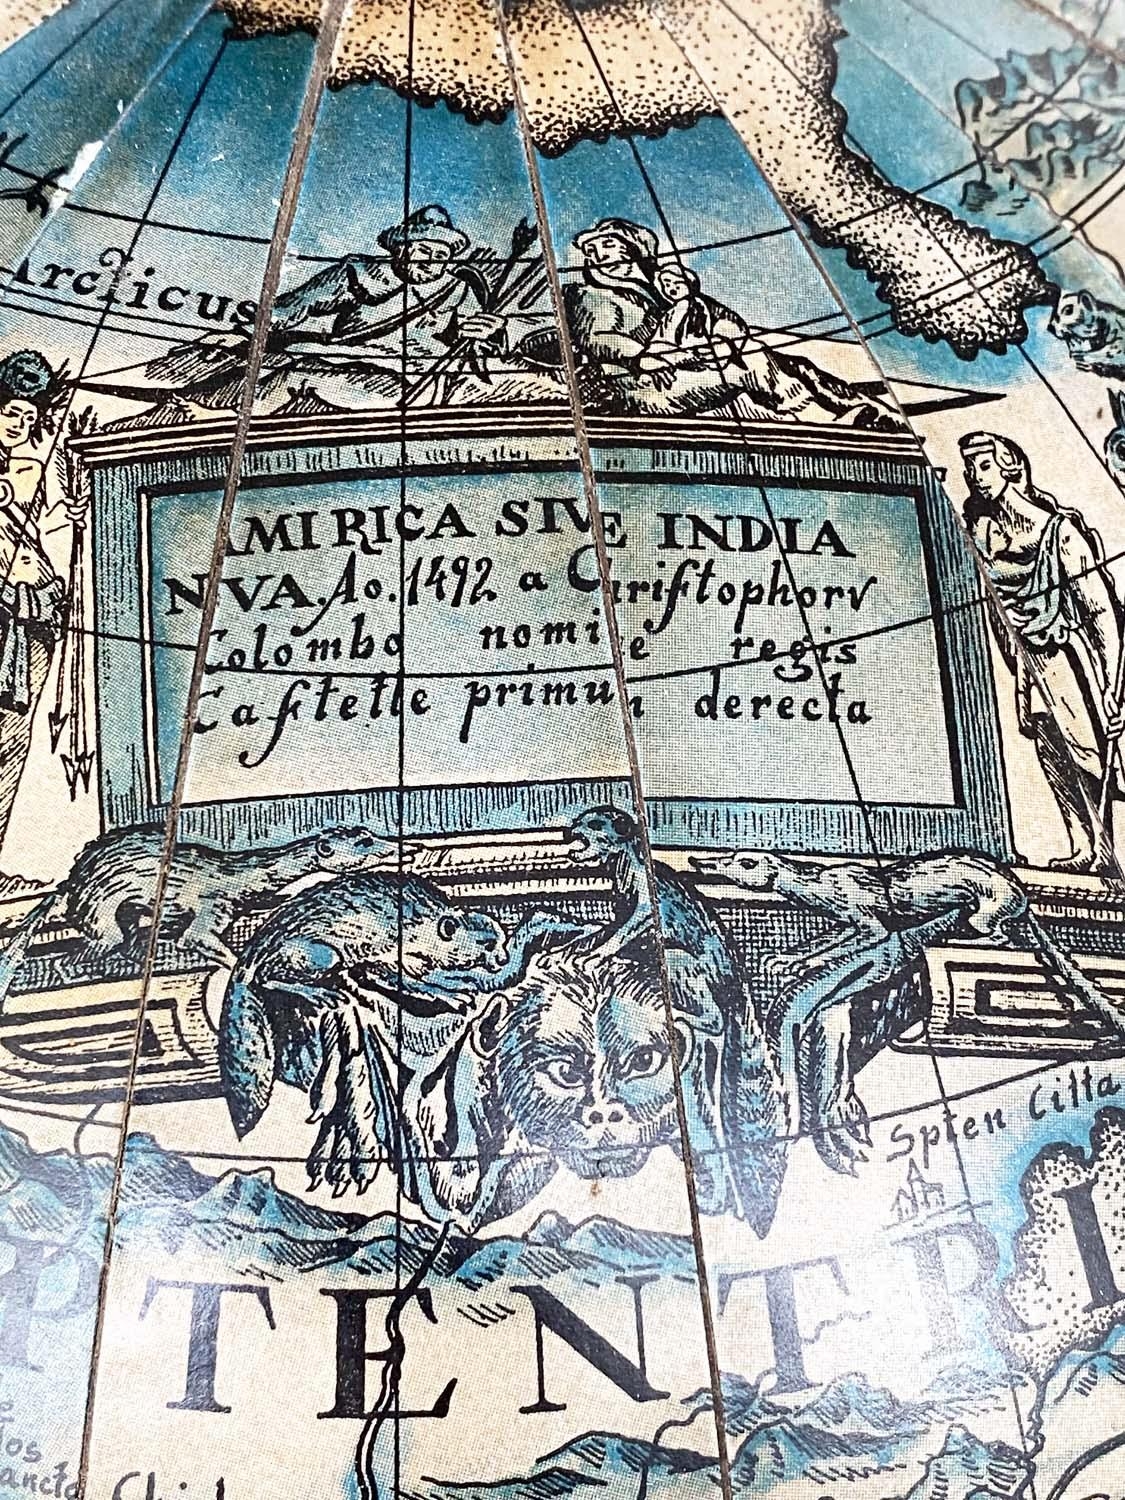 Arcticus
AMIRICA SIVE INDIA
NVA. Ao. 1492 a Chriſtophorv
Colombo nomine regis
Caſtelle primum derecta
Spten Citta
PTENTRI
los
Sancto